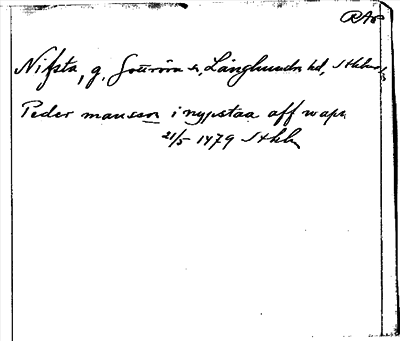 RAp
Nifsta, g. Gottröra sn, Långhundra hd, Sthlms l.
Peder mansson i nypstaa aff wapn
21/5 1479 Sthlm